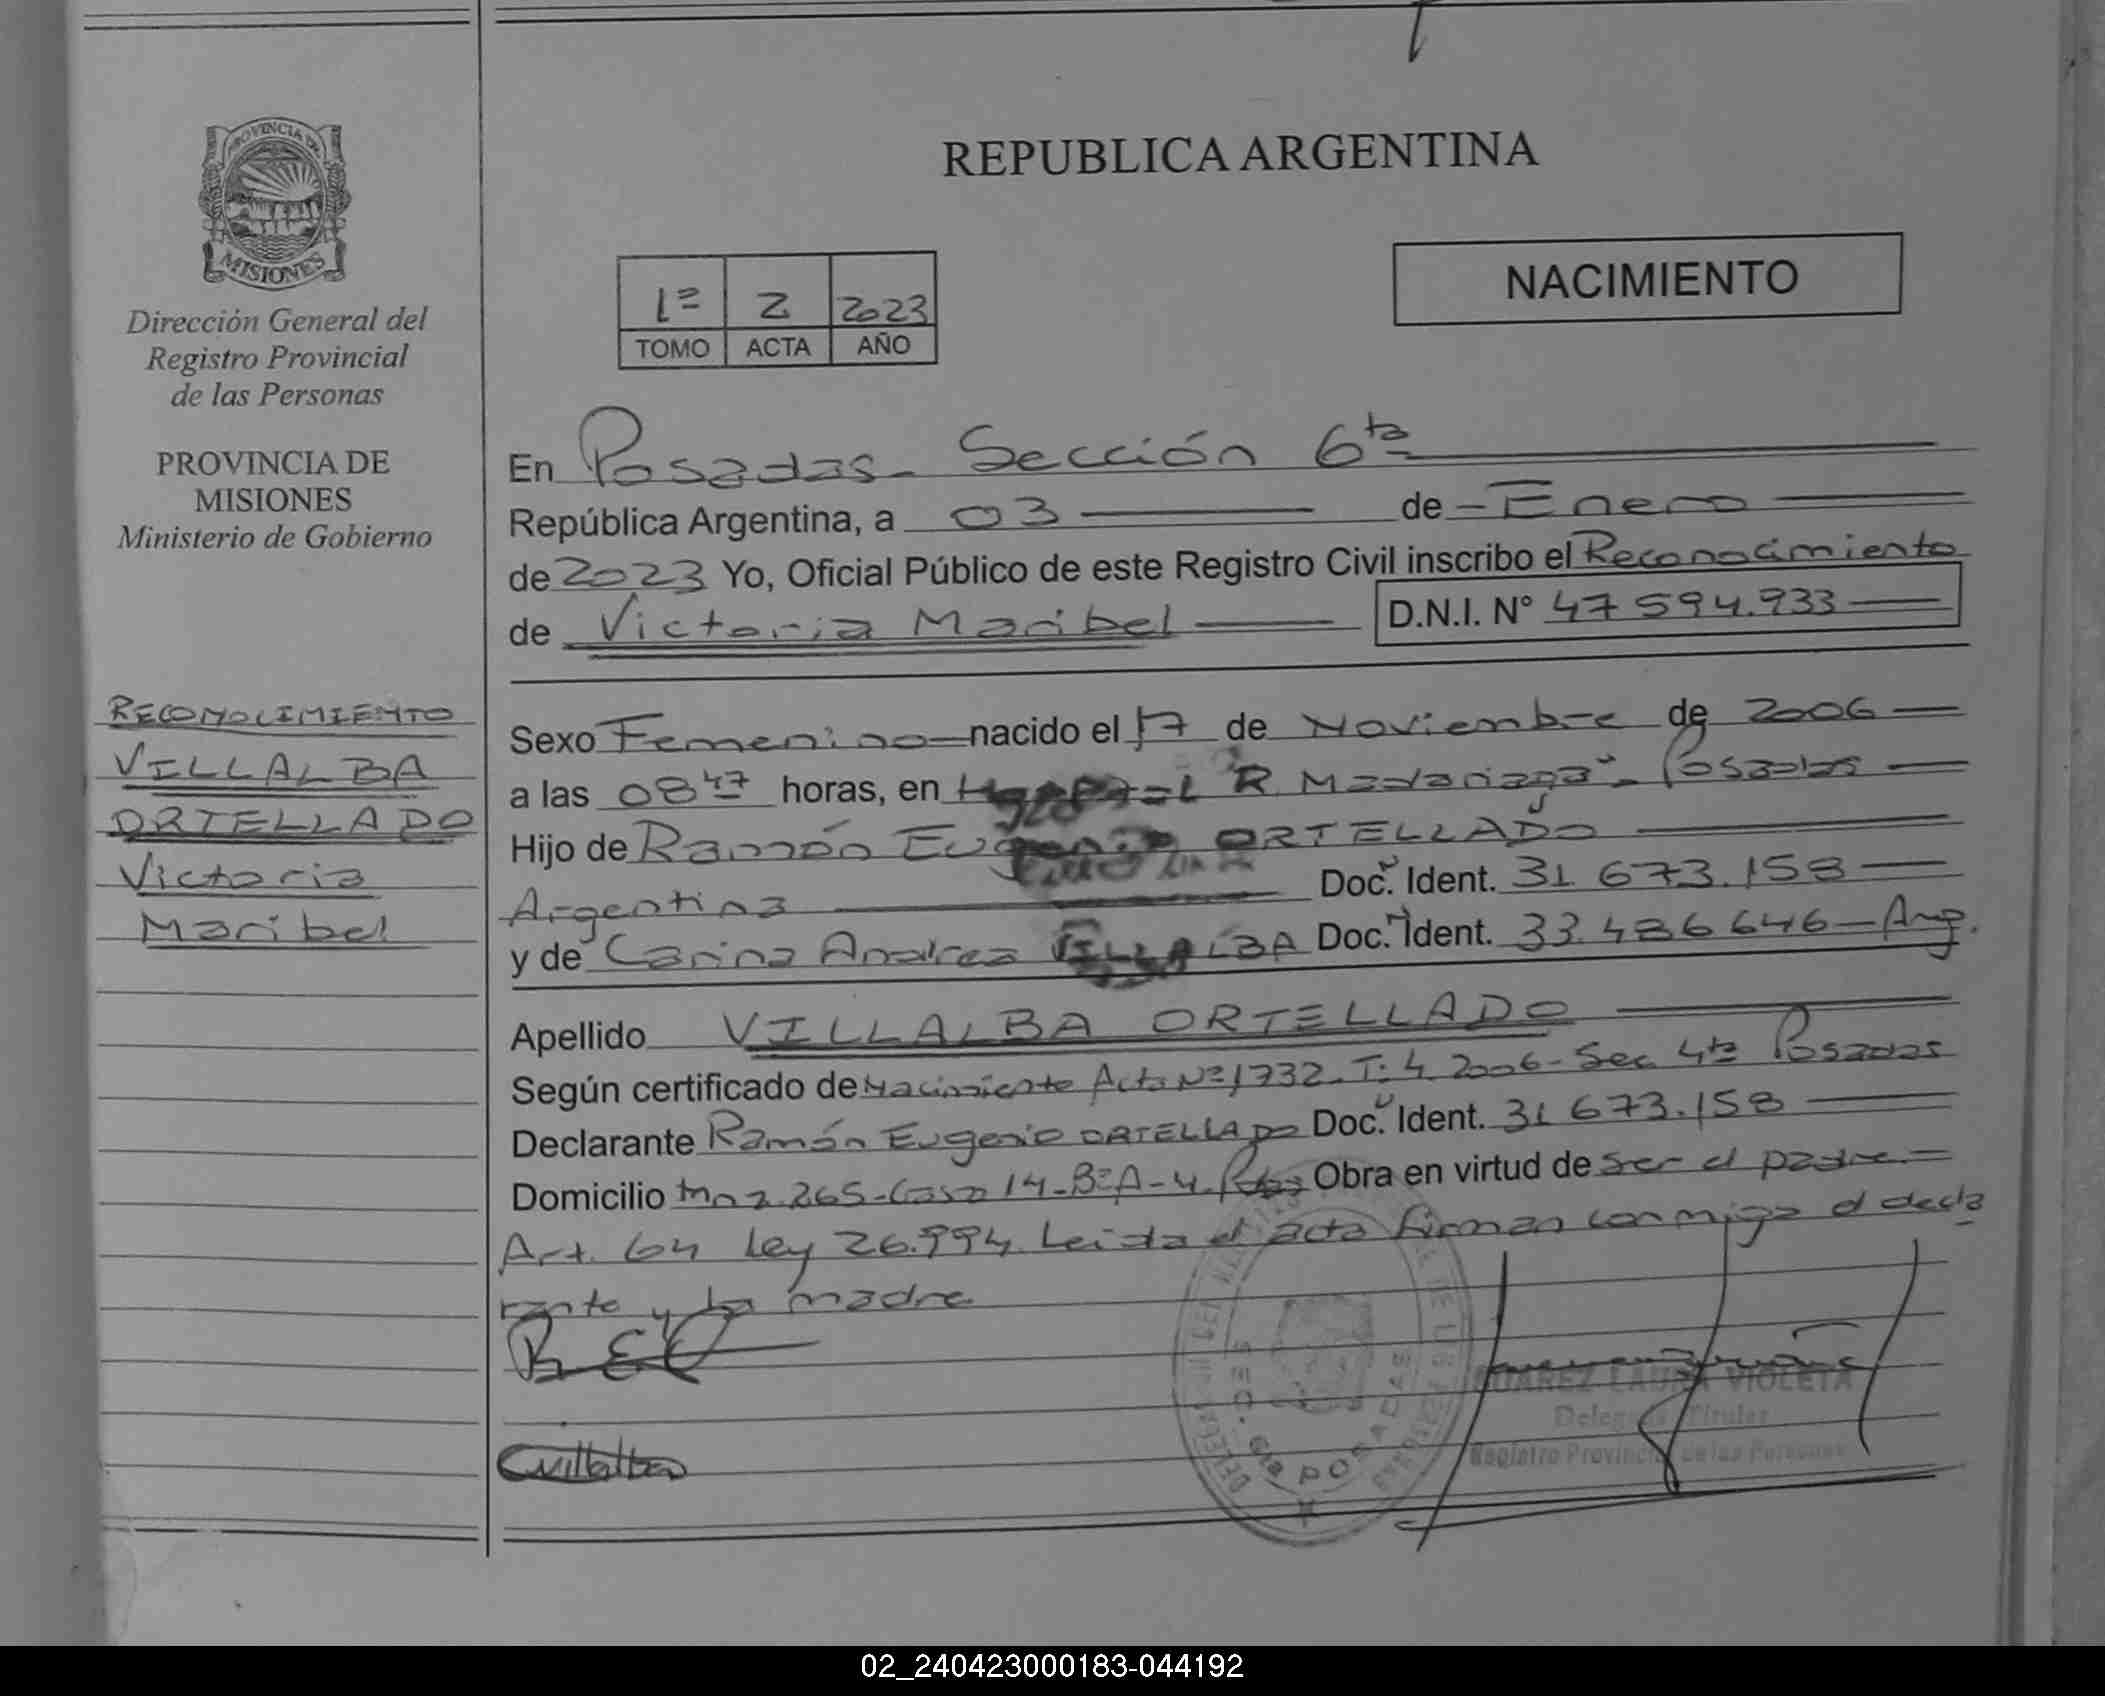 PROVINCIA DE
MISIONES
Dirección General del
Registro Provincial
de las Personas
PROVINCIA DE
MISIONES
Ministerio de Gobierno
RECONOCIMIENTO
VILLALBA
ORTELLADO
Victoria
Maribel
REPUBLICA ARGENTINA
1º 2 2023
TOMO ACTA AÑO
NACIMIENTO
En Posadas - Sección 6ta
República Argentina, a 03 de Enero
de 2023 Yo, Oficial Público de este Registro Civil inscribo el Reconocimiento
de Victoria Maribel D.N.I. N° 47 594.933
Sexo Femenino nacido el 17 de Noviembre de 2006
a las 08 47 horas, en R. Madariaga" - Posadas
Hijo de Ramón Eugenio ORTELLADO
Argentina Doc. Ident. 31 673.158
y de Carina Andrea VILLALBA Doc. Ident. 33.486 646 - Arg.
Apellido VILLALBA ORTELLADO
Según certificado de Nacimiento Acta Nº 1732. T: 4. 2006 - Sec. 4ta Posadas
Declarante Ramón Eugenio ORTELLADO Doc. Ident. 31 673.158
Domicilio Mnz. 265 - Casa 14 - Bº A-4. Obra en virtud de ser el padre
Art. 64 Ley 26.994. Leida el acta firman conmigo el decla
rante y la madre
R E O
CVillalba
SUAREZ LAURA VIOLETA
Delegada Titular
Registro Provincial de las Personas
SEC. 6ta POSADAS
02_240423000183-044192